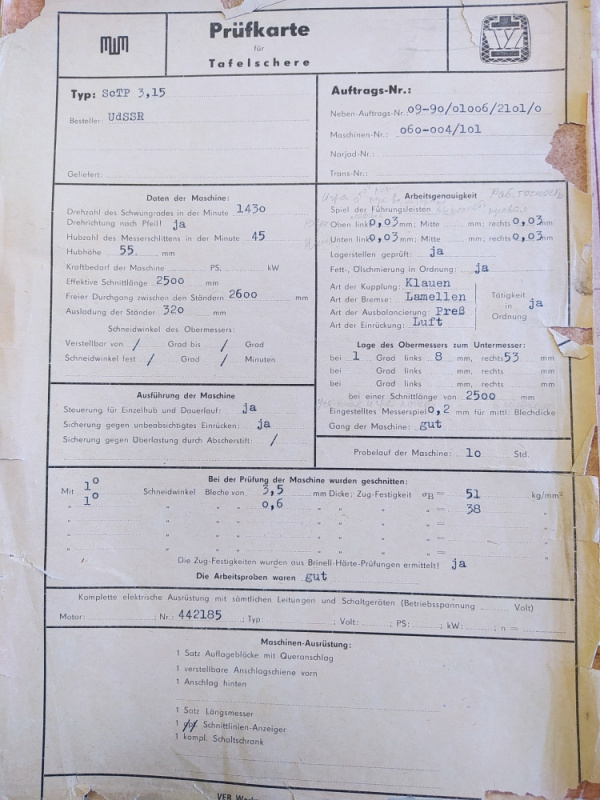 MWM
Prüfkarte
für
Tafelschere
Typ: ScTP 3,15
Besteller: UdSSR
Geliefert:
Auftrags-Nr.:
Neben-Auftrags-Nr. 09-90/01006/2101/0
Maschinen-Nr.: 060-004/101
Narjad-Nr.:
Trans-Nr.:
Daten der Maschine:
Drehzahl des Schwungrades in der Minute 1430
Drehrichtung nach Pfeil! ja
Hubzahl des Messerschlittens in der Minute 45
Hubhöhe 55 mm
Kraftbedarf der Maschine PS, kW
Effektive Schnittlänge 2500 mm
Freier Durchgang zwischen den Ständern 2600 mm
Ausladung der Ständer 320 mm
Schneidwinkel des Obermessers:
Verstellbar von / Grad bis / Grad
Schneidwinkel fest / Grad / Minuten
Ausführung der Maschine
Steuerung für Einzelhub und Dauerlauf: ja
Sicherung gegen unbeabsichtigtes Einrücken: ja
Sicherung gegen Überlastung durch Abscherstift: /
Раб. точность
Arbeitsgenauigkeit
Spiel der Führungsleisten
Oben links 0,03 mm; Mitte mm; rechts 0,03 mm
Unten links 0,03 mm; Mitte mm; rechts 0,03 mm
Lagerstellen geprüft: ja
Fett-, Ölschmierung in Ordnung: ja
Art der Kupplung: Klauen
Art der Bremse: Lamellen
Art der Ausbalancierung: Preß
Art der Einrückung: Luft
Tätigkeit in Ordnung ja
Lage des Obermessers zum Untermesser:
bei 1 Grad links 8 mm, rechts 53 mm
bei Grad links mm, rechts mm
bei Grad links mm, rechts mm
bei einer Schnittlänge von 2500 mm
Eingestelltes Messerspiel 0,2 mm für mittl. Blechdicke
Gang der Maschine: gut
Probelauf der Maschine: 10 Std.
Bei der Prüfung der Maschine wurden geschnitten:
Mit 1° Schneidwinkel Bleche von 3,5 mm Dicke; Zug-Festigkeit σB = 51 kg/mm²
" 1° " " " 0,6 " " " " = 38 "
" " " " " " " = "
" " " " " " " = "
" " " " " " " = "
Die Zug-Festigkeiten wurden aus Brinell-Härte-Prüfungen ermittelt! ja
Die Arbeitsproben waren gut
Komplette elektrische Ausrüstung mit sämtlichen Leitungen und Schaltgeräten (Betriebsspannung Volt)
Motor: ; Nr.: 442185 ; Typ: ; Volt: ; PS: ; kW: ; n =
Maschinen-Ausrüstung:
1 Satz Auflageblöcke mit Queranschlag
1 verstellbare Anschlagschiene vorn
1 Anschlag hinten
1 Satz Längsmesser
1 Schnittlinien-Anzeiger
1 kompl. Schaltschrank
VEB